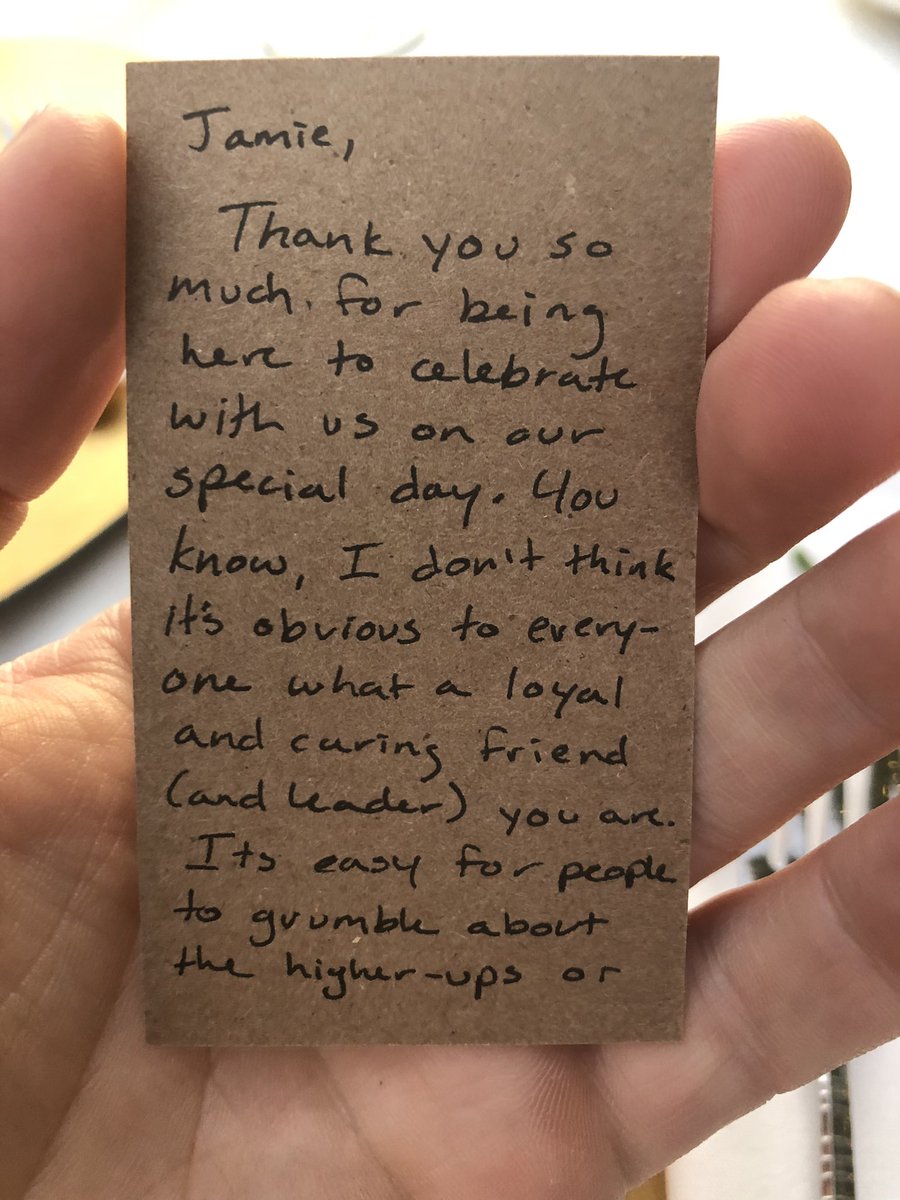 Jamie,
Thank you so
much. for being
here to celebrate
with us on our
special day. You
know, I don't think
it's obvious to every-
one what a loyal
and caring friend
(and leader) you are.
Its easy for people
to grumble about
the higher-ups or